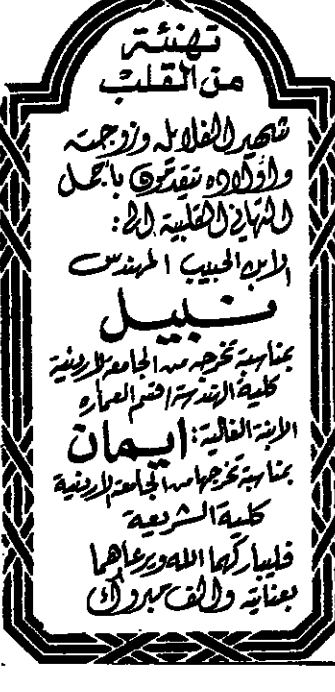 تهنئة
من القلب
شهير الفلايله وزوجته
وأولاده يتقدمون بأجمل
التهاني القلبية الى:
الابن الحبيب المهندس
نبيل
بمناسبة تخرجه من الجامعة الاردنية
كلية الهندسة / قسم العماره
الابنة الغالية: ايمان
بمناسبة تخرجها من الجامعة الاردنية
كلية الشريعة
فليباركهما الله ويرعاهما
بعنايته والف مبروك